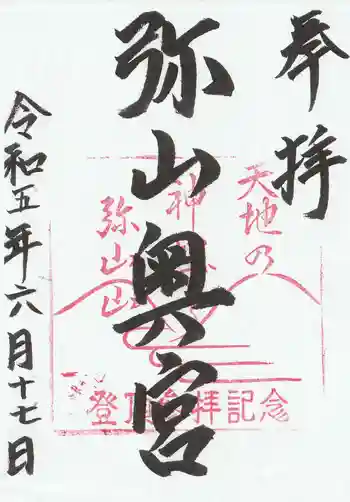 奉拝
天地乃
神
弥山
弥山奥宮
登頂参拝記念
令和五年六月十七日